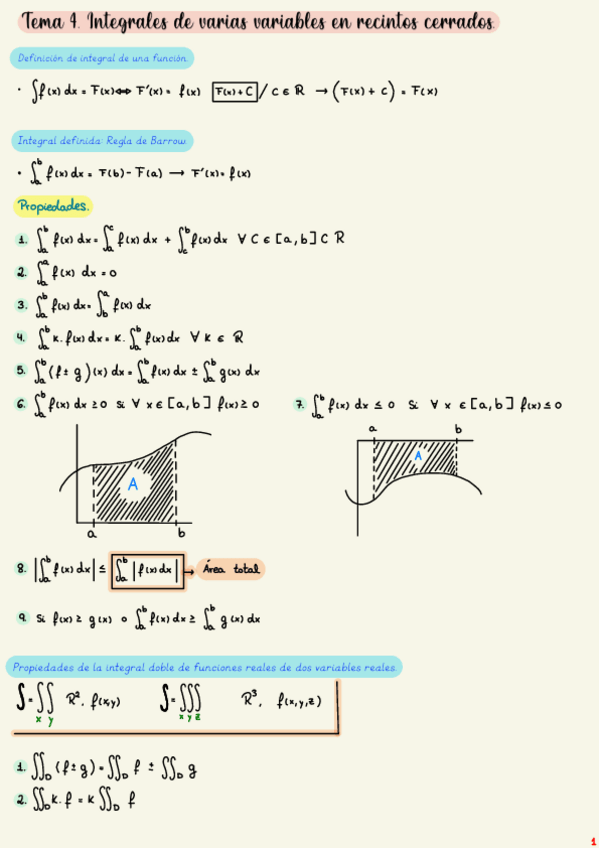 Tema 4. Integrales de varias variables en recintos cerrados.
Definición de integral de una función.
· ∫f(x) dx = F(x) ⇔ F'(x) = f(x) F(x) + C / C ∈ ℝ → (F(x) + C) = F(x)
Integral definida: Regla de Barrow.
· ∫_a^b f(x) dx = F(b) - F(a) → F'(x) = f(x)
Propiedades.
1. ∫_a^b f(x) dx = ∫_a^c f(x) dx + ∫_c^b f(x) dx ∀ C ∈ [a, b] C ℝ
2. ∫_a^a f(x) dx = 0
3. ∫_a^b f(x) dx = ∫_b^a f(x) dx
4. ∫_a^b k. f(x) dx = k. ∫_a^b f(x) dx ∀ k ∈ ℝ
5. ∫_a^b (f ± g)(x) dx = ∫_a^b f(x) dx ± ∫_a^b g(x) dx
6. ∫_a^b f(x) dx ≥ 0 si ∀ x ∈ [a, b] f(x) ≥ 0
7. ∫_a^b f(x) dx ≤ 0 si ∀ x ∈ [a, b] f(x) ≤ 0
A
a b
a b
A
8. |∫_a^b f(x) dx| ≤ ∫_a^b |f(x) dx| → Área total
9. Si f(x) ≥ g(x) o ∫_a^b f(x) dx ≥ ∫_a^b g(x) dx
Propiedades de la integral doble de funciones reales de dos variables reales.
∫ = ∫∫ ℝ², f(x,y) ∫ = ∫∫∫ ℝ³, f(x,y,z)
x y x y z
1. ∫∫_D (f ± g) = ∫∫_D f ± ∫∫_D g
2. ∫∫_D k. f = k ∫∫_D f
1